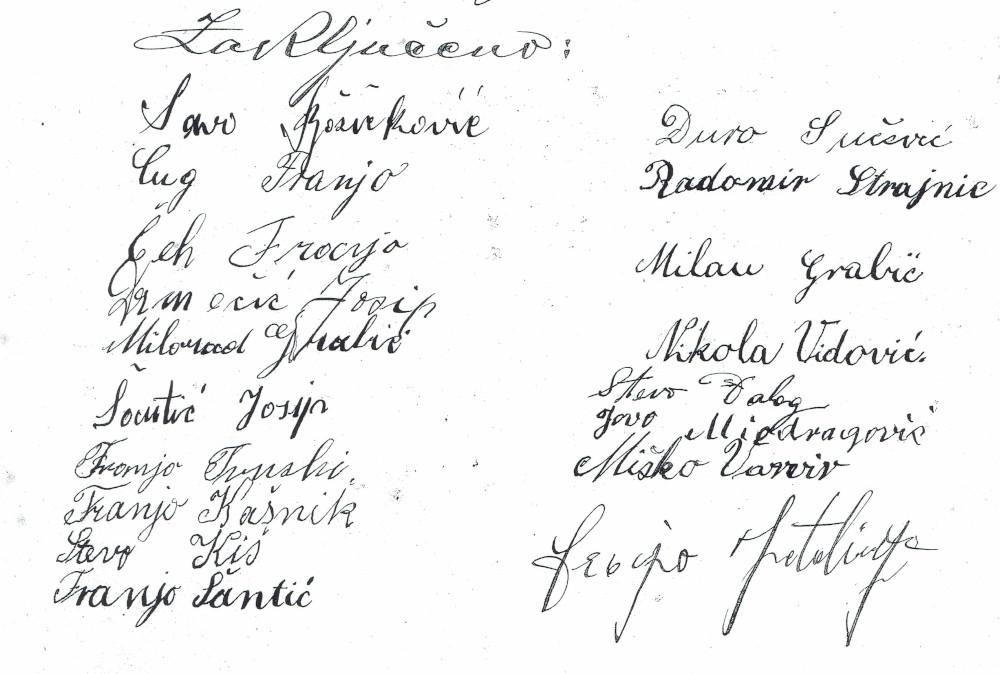 Zaključeno:
Savo Božičković
Cug Franjo
Čeh Franjo
Drmečić Josip
Milorad Grabić
Šantić Josip
Franjo
Franjo Kašnik
Stevo Kiš
Franjo Šantić
Đuro Sučević
Radomir Strajnic
Milan Grabić
Nikola Vidović.
Stevo Dalog
Jovo Miodragović
Miško